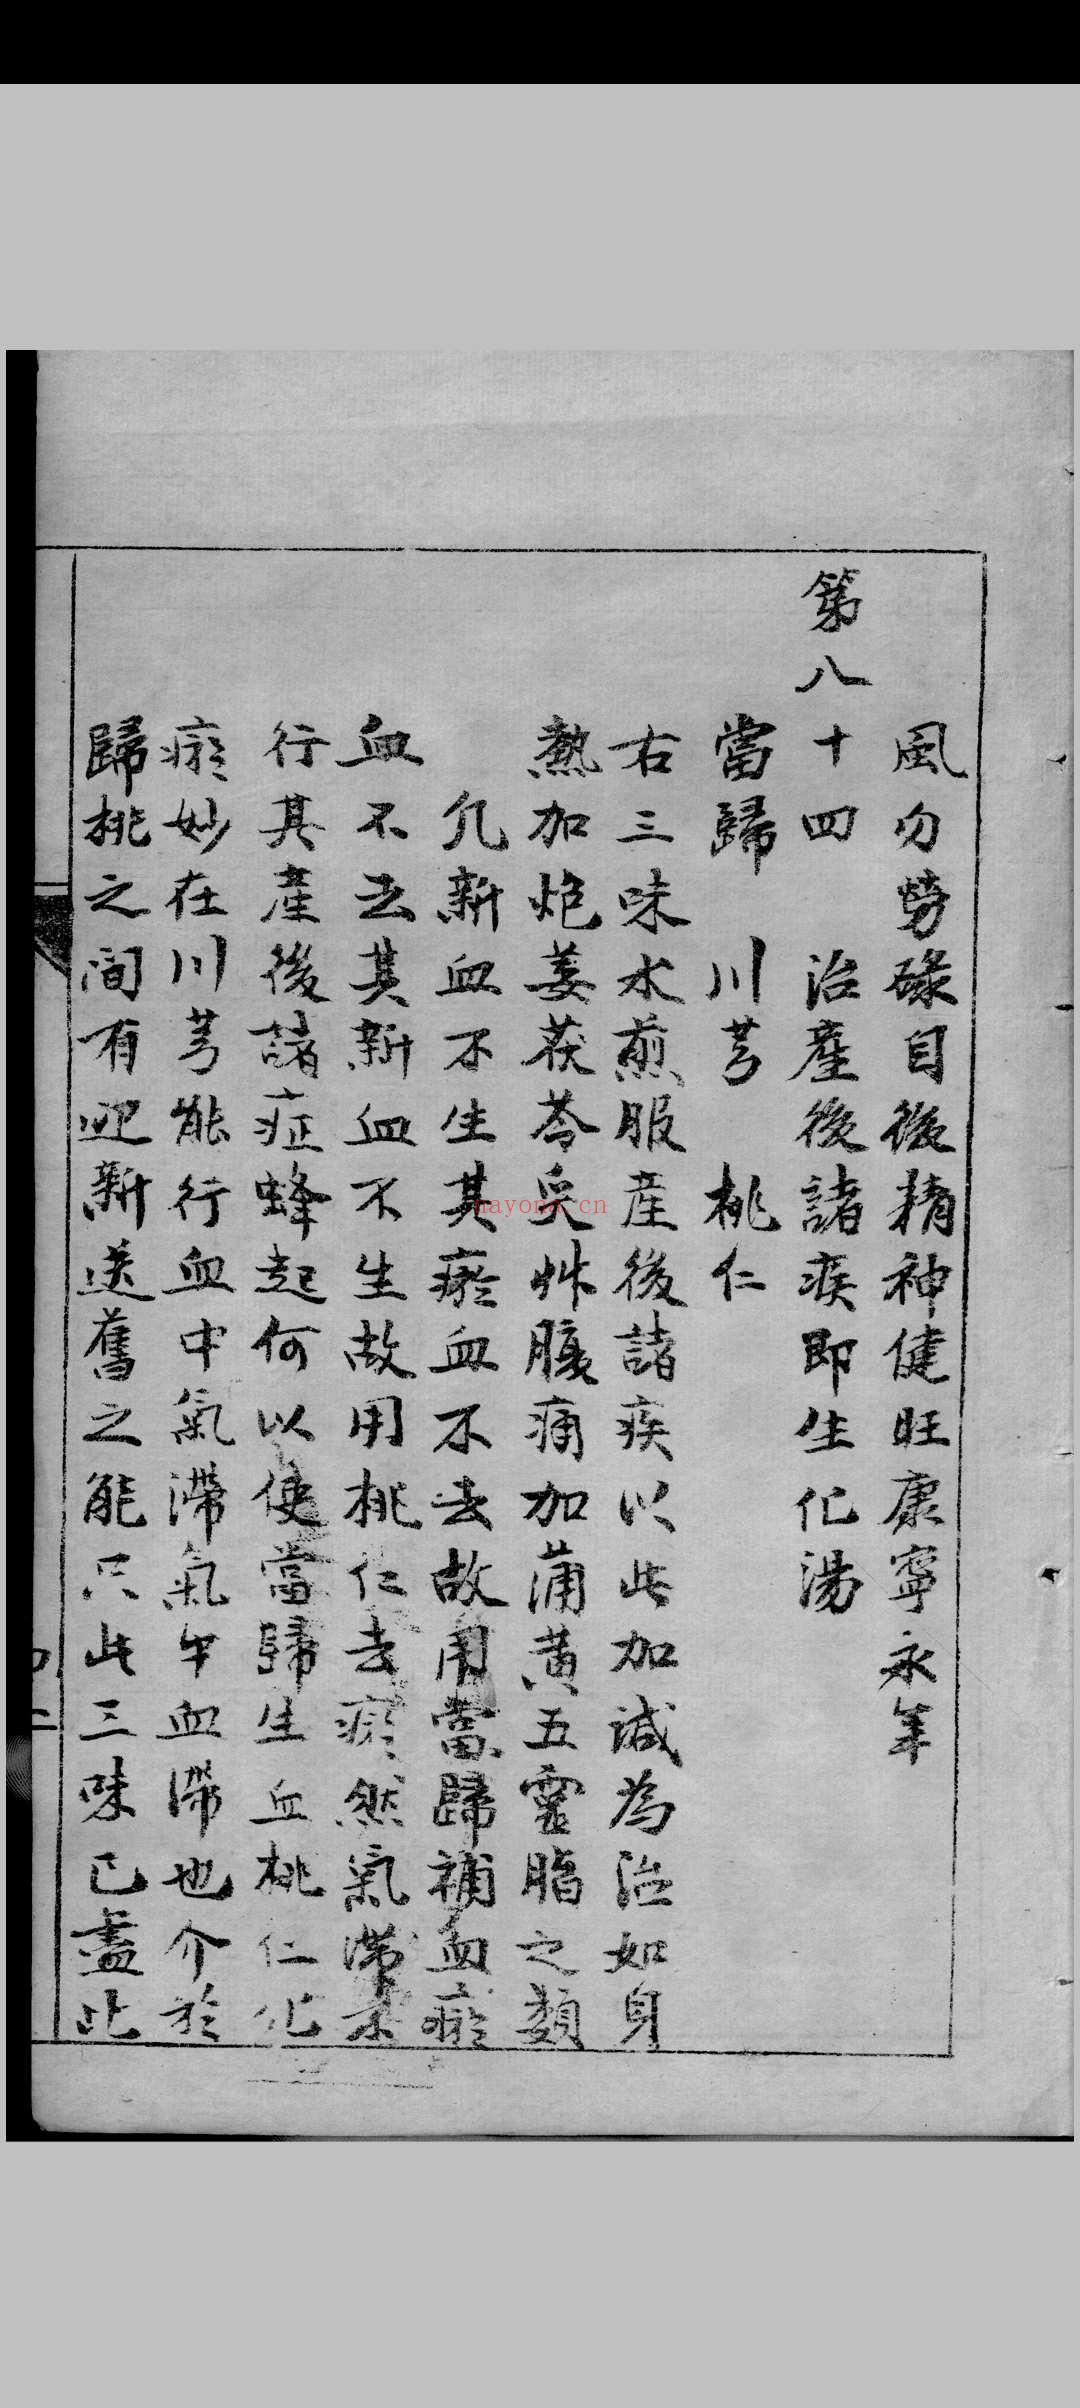 風勿勞碌自後精神健旺康寧永年
第八十四 治產後諸疾即生化湯
當歸 川芎 桃仁
右三味水煎服產後諸疾以此加減為治如身
熱加炮姜茯苓灸艸腹痛加蒲黄五靈脂之類
凢新血不生其瘀血不去故用當歸補血瘀
血不去其新血不生故用桃仁去瘀然氣滯不
行其產後諸症蜂起何以使當歸生血桃仁化
瘀妙在川芎能行血中氣滯氣午血滯也介於
歸桃之間有迎新送舊之能只此三味已盡此
nayona.cn